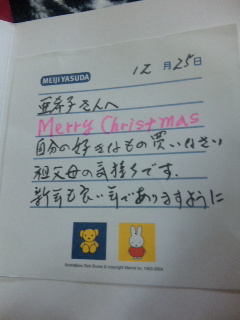 MEIJI YASUDA
12月25日
亜希子さんへ
Merry Christmas
自分の好きなもの買いなさい
祖父母の気持ちです.
新年も良い年でありますように
Illustrations Dick Bruna © copyright Mercis bv, 1953-2004